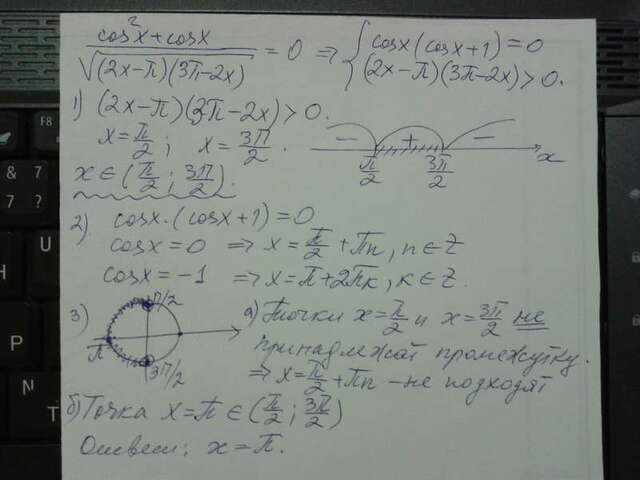 cos²x + cosx / √((2x-π)(3π-2x)) = 0 ⇒ { cosx (cosx + 1) = 0
(2x-π)(3π-2x) > 0.
1) (2x-π)(3π-2x) > 0.
x = π/2 ; x = 3π/2 .
- + -
π/2 3π/2 x
x ∈ (π/2 ; 3π/2).
2) cosx·(cosx + 1) = 0
cosx = 0 ⇒ x = π/2 + πn, n ∈ Z
cosx = -1 ⇒ x = π + 2πk, k ∈ Z.
3) π/2
π
3π/2
а) Точки x = π/2 и x = 3π/2 не
принадлежат промежутку.
⇒ x = π/2 + πn - не подходят
б) Точка x = π ∈ (π/2 ; 3π/2)
Ответ: x = π.
F8
&
7
7
?
U
H
N
T